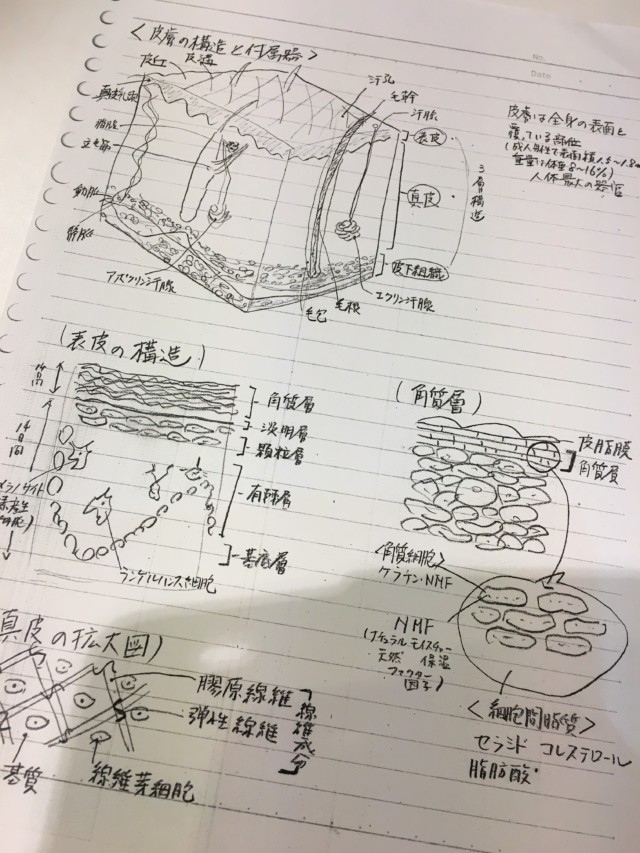 No.
Date
<皮膚の構造と付属器>
皮丘 皮溝
汗孔
毛幹
汗腺
脂腺
立毛筋
動脈
静脈
アポクリン汗腺
毛包
毛根
エクリン汗腺
表皮
真皮
皮下組織
3層構造
皮膚は全身の表面を
覆っている部位
人体最大の器官
(表皮の構造)
14日間
14日間
角質層
淡明層
顆粒層
有棘層
基底層
ランゲルハンス細胞
(角質層)
皮脂膜
角質層
<角質細胞>
ケラチン・NMF
NMF
(ナチュラルモイスチャー
天然 保湿
ファクター
因子)
<細胞間脂質>
セラミド コレステロール
脂肪酸
真皮の拡大図)
膠原線維
弾性線維
線維成分
基質
線維芽細胞